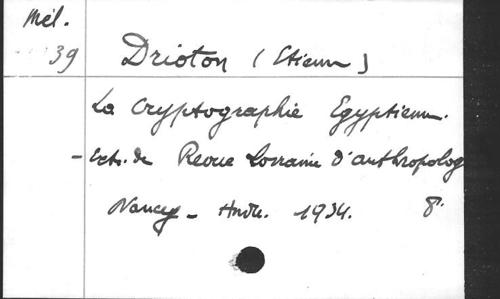 Mél.
39
Drioton (Etienne)
La Cryptographie Egyptienne.
- Extr. de Revue Lorraine d'anthropolog
Nancy - 1934. 8°.